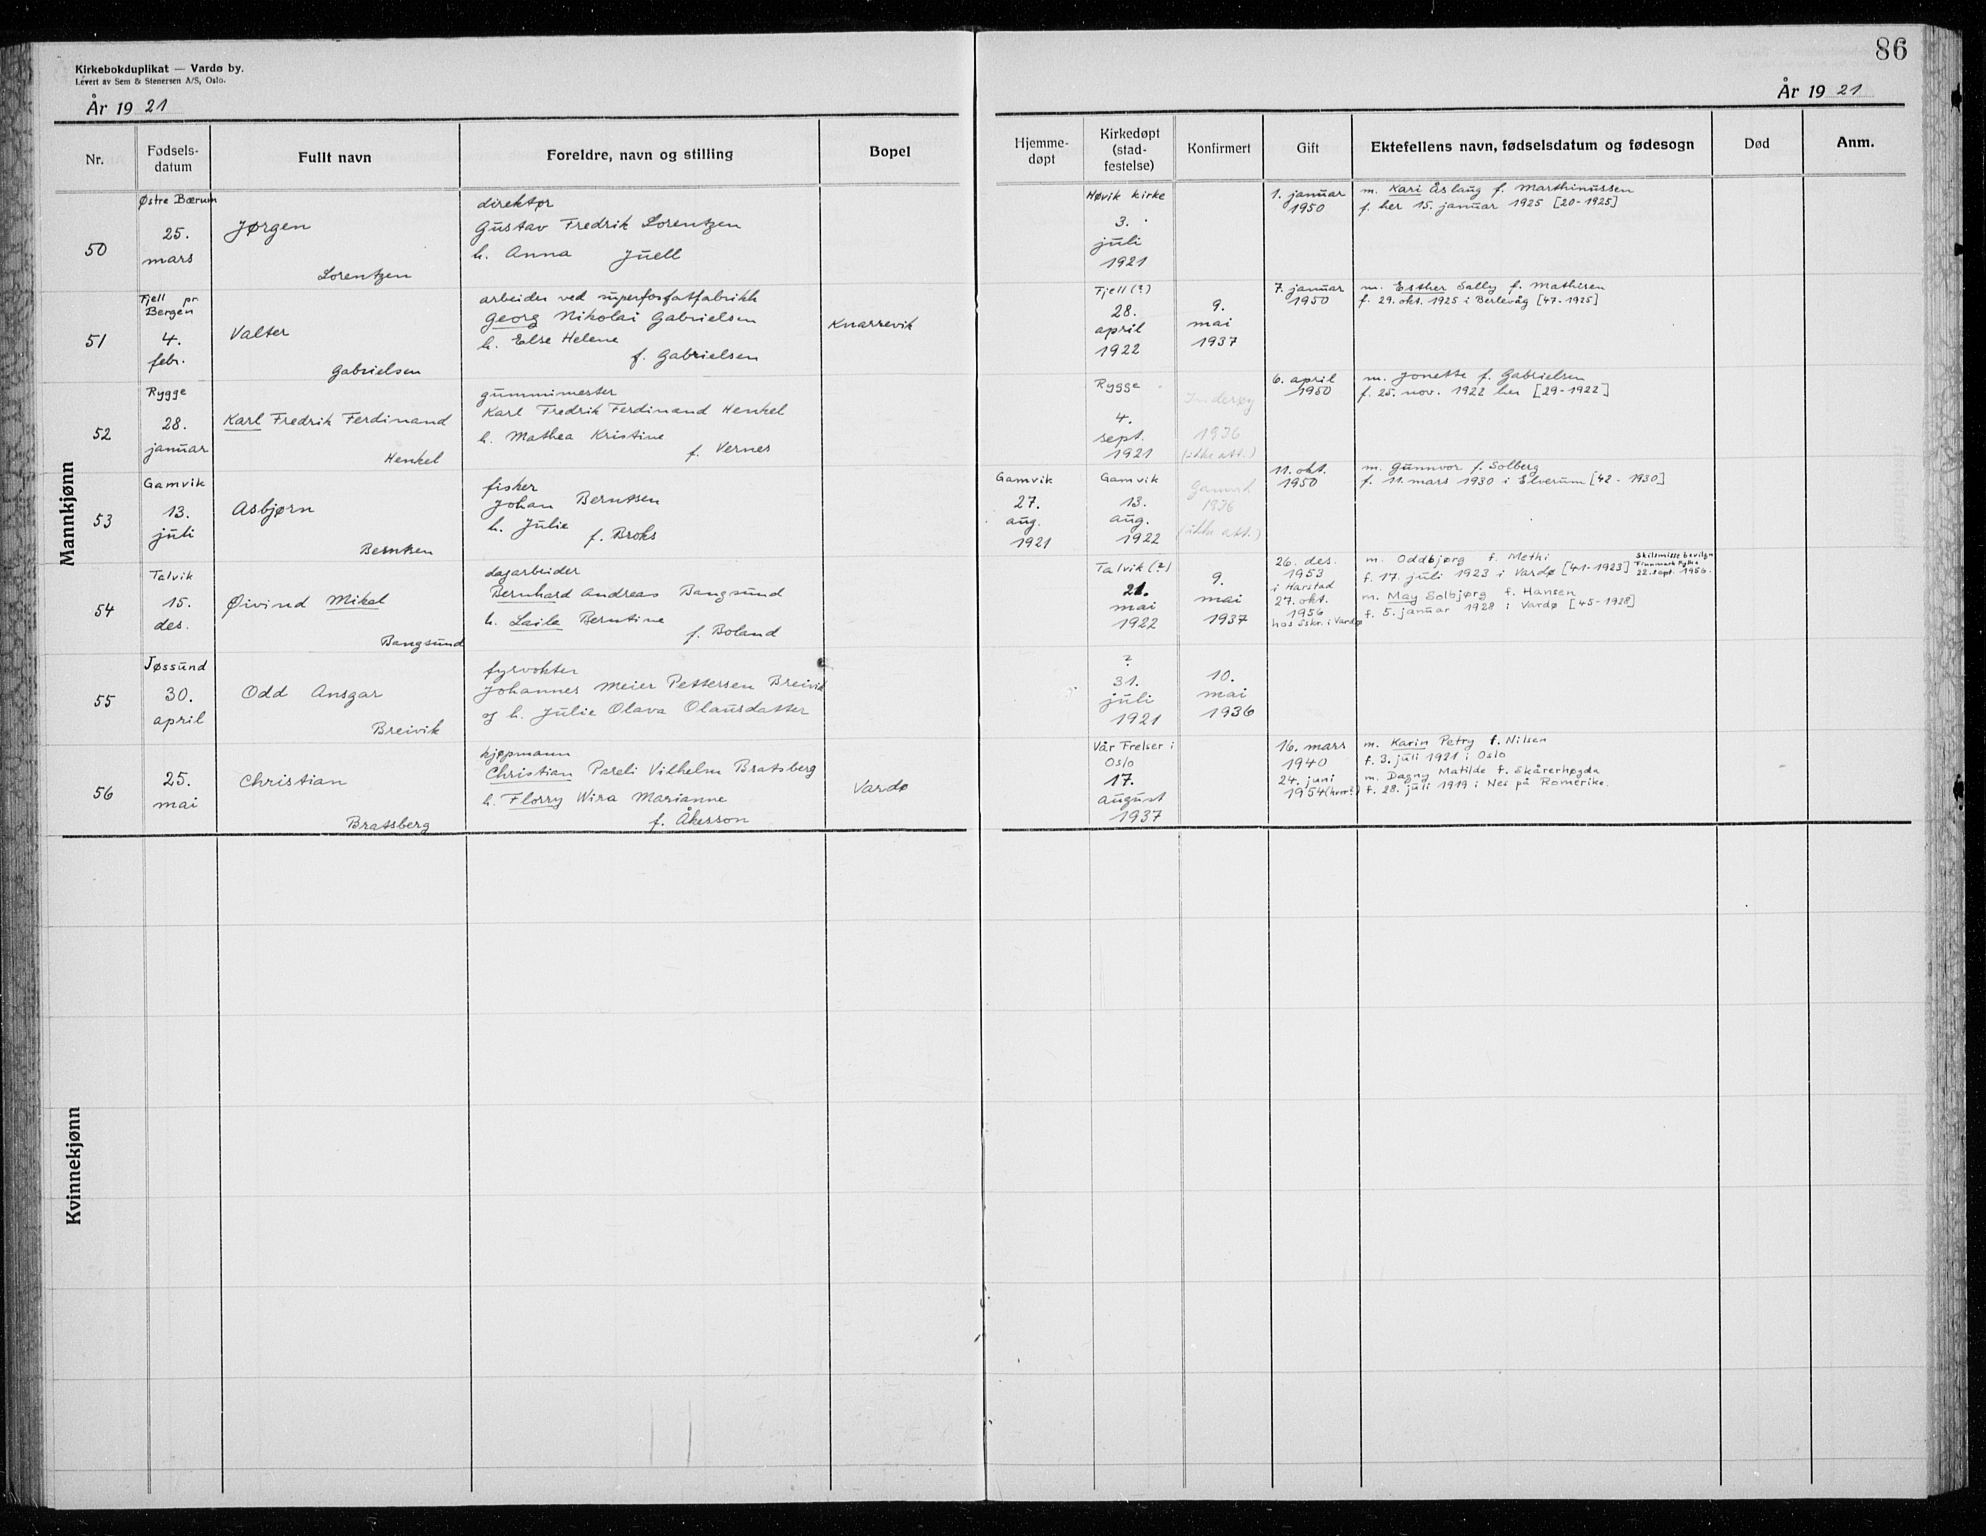 86
Kirkebokduplikat — Vardø by.
Levert av Sem & Stenersen A/S, Oslo.
År 19 21
År 19 21
Nr.
Fødsels-
datum
Fullt navn
Foreldre, navn og stilling
Bopel
Hjemme-
døpt
Kirkedøpt
(stad-
festelse)
Konfirmert
Gift
Ektefellens navn, fødselsdatum og fødesogn
Død
Anm.
Mannkjønn
50
Østre Bærum
25.
mars
Jørgen
Lorentzen
direktør
Gustav Fredrik Lorentzen
h. Anna Juell
Høvik kirke
3.
juli
1921
1. januar
1950
m. Kari Åslaug f. Marthinussen
f. her 15. januar 1925 [20-1925]
51
Fjell pr.
Bergen
4.
febr.
Valter
Gabrielsen
arbeider ved superfosfatfabrikk
Georg Nikolai Gabrielsen
h. Else Helene
f. Gabrielsen
Knarrevik
Fjell (?)
28.
april
1922
9.
mai
1937
7. januar
1950
m. Esther Sally f. Mathisen
f. 29. okt. 1925 i Berlevåg [47-1925]
52
Rygge
28.
januar
Karl Fredrik Ferdinand
Henkel
gummimester
Karl Fredrik Ferdinand Henkel
h. Mathea Kristine
f. Vernes
Rygge
4.
sept.
1921
Inderøy
1936
(ikke att.)
6. april
1950
m. Jonette f. Gabrielsen
f. 25. nov. 1922 her [29-1922]
53
Gamvik
13.
juli
Asbjørn
Berntsen
fisker
Johan Berntsen
h. Julie
f. Broks
Gamvik
27.
aug.
1921
Gamvik
13.
aug.
1922
Gamvik
1936
(ikke att.)
11. okt.
1950
m. Gunnvor f. Solberg
f. 11. mars 1930 i Elverum [42-1930]
54
Talvik
15.
des.
Øivind Mikal
Bangsund
dagarbeider
Bernhard Andreas Bangsund
h. Laila Berntine
f. Boland
Talvik (?)
21.
mai
1922
9.
mai
1937
26. des.
1953
i Harstad
27. okt.
1956
hos Sskr. i Vardø
m. Oddbjørg f. Methi
f. 17. juli 1923 i Vardø [41-1923]
Skilsmisse bevilgn
Finnmark Fylke
22. sept. 1956.
m. May Solbjørg f. Hansen
f. 5. januar 1928 i Vardø [45-1928]
55
Jøssund
30.
april
Odd Ansgar
Breivik
fyrvokter
Johannes Meier Pettersen Breivik
og h. Julie Olava Olausdatter
?
31.
juli
1921
10.
mai
1936
56
25.
mai
Christian
Bratsberg
kjøpmann
Christian Pareli Vilhelm Bratsberg
h. Florry Wira Marianne
f. Åkesson
Vardø
Vår Frelser i
Oslo
17.
august
1937
16. mars
1940
24. juni
1954 (hvor?)
m. Karin Petry f. Nilsen
f. 3. juli 1921 i Oslo
m. Dagny Matilde f. Skårerhøgda
f. 28. juli 1919 i Nes på Romerike.
Kvinnekjønn